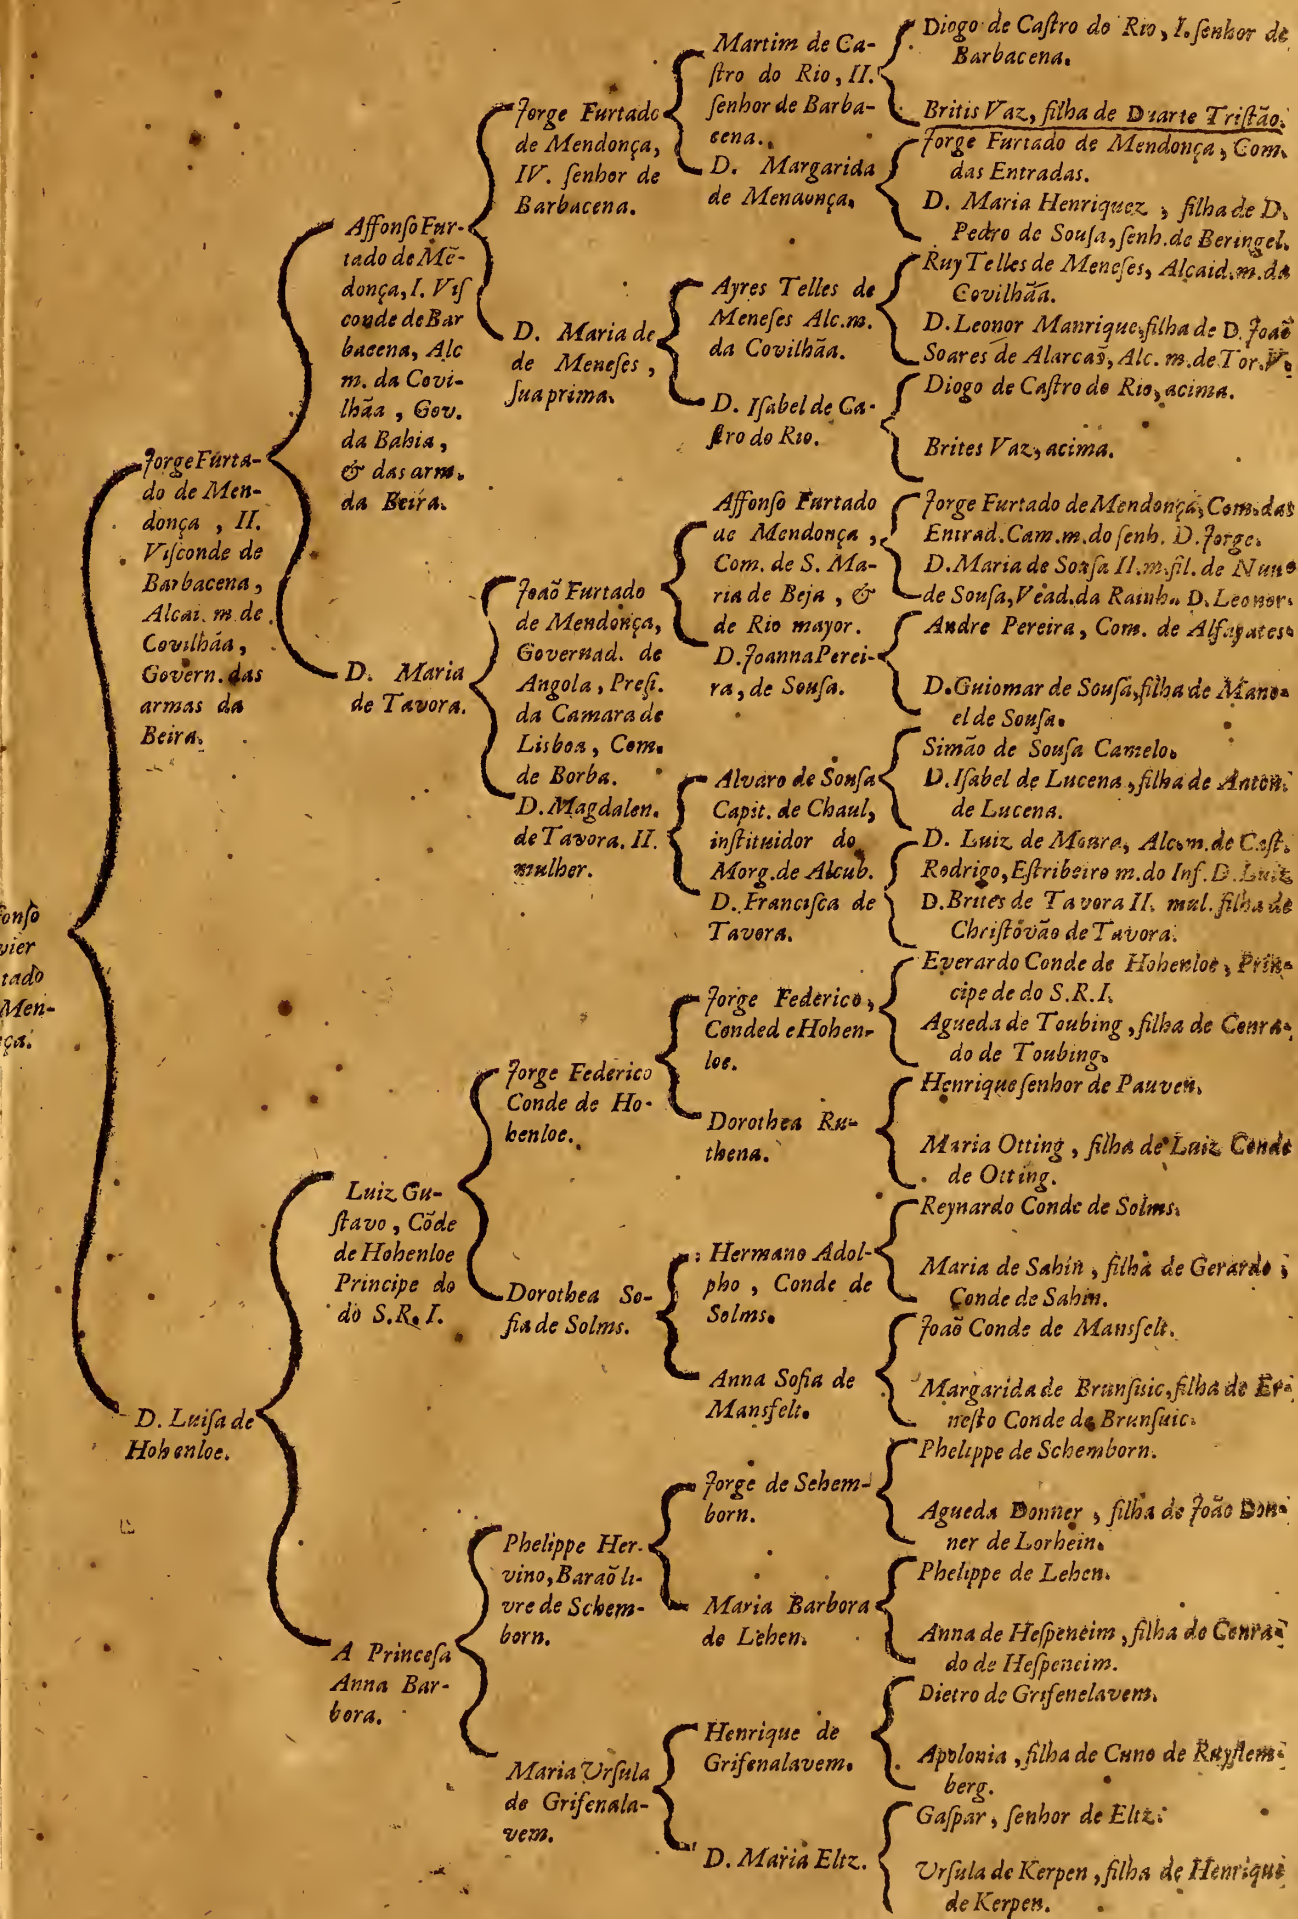 fonſo
vier
tado
Men-
ça.
Jorge Furta-
do de Men-
donça , II.
Viſconde de
Barbacena ,
Alcai. m. de
Covilhãa ,
Govern. das
armas da
Beira.
D. Luiſa de
Hohenloe.
Affonſo Fur-
tado de Mẽ-
donça, I. Viſ
conde de Bar
bacena, Alc
m. da Covi-
lhãa , Gov.
da Bahia ,
& das arm.
da Beira.
D. Maria
de Tavora.
Luiz Gu-
ſtavo , Cõde
de Hohenloe
Principe do
do S.R. I.
A Princeſa
Anna Bar-
bora.
Jorge Furtado
de Mendonça,
IV. ſenhor de
Barbacena.
D. Maria de
de Meneſes ,
ſua prima.
Joaõ Furtado
de Mendonça,
Governad. de
Angola , Preſi.
da Camara de
Lisboa , Com.
de Borba.
D. Magdalen.
de Tavora. II.
mulher.
Jorge Federico
Conde de Ho-
henloe.
Dorothea So-
fia de Solms.
Phelippe Her-
vino, Baraõ li-
vre de Schem-
born.
Maria Urſula
de Grifenala-
vem.
Martim de Ca-
ſtro do Rio , II.
ſenhor de Barba-
cena.
D. Margarida
de Mendonça.
Ayres Telles de
Meneſes Alc.m.
da Covilhãa.
D. Iſabel de Ca-
ſtro do Rio.
Affonſo Furtado
de Mendonça ,
Com. de S. Ma-
ria de Beja , &
de Rio mayor.
D. Joanna Perei-
ra, de Souſa.
Alvaro de Souſa
Capit. de Chaul,
inſtituidor do
Morg. de Alcub.
D. Franciſca de
Tavora.
Jorge Federico ,
Conded e Hohen-
loe.
Dorothea Ru-
thena.
Hermano Adol-
pho , Conde de
Solms.
Anna Sofia de
Mansfelt.
Jorge de Schem-
born.
Maria Barbora
de Lehen.
Henrique de
Grifenalavem.
D. Maria Eltz.
Diogo de Caſtro do Rio , I. ſenhor de
Barbacena.
Britis Vaz, filha de Duarte Triſtão.
Jorge Furtado de Mendonça , Com.
das Entradas.
D. Maria Henriquez , filha de D.
Pedro de Souſa, ſenh. de Beringel.
Ruy Telles de Meneſes, Alcaid. m. da
Covilhãa.
D. Leonor Manrique, filha de D. Joaõ
Soares de Alarcaõ, Alc. m. de Tor. V.
Diogo de Caſtro do Rio, acima.
Brites Vaz, acima.
Jorge Furtado de Mendonça, Com. das
Entrad. Cam. m. do ſenh. D. Jorge.
D. Maria de Souſa II. m. fil. de Nuno
de Souſa, Vèad. da Rainh. D. Leonor.
Andre Pereira , Com. de Alfayates.
D. Guiomar de Souſa, filha de Mano-
el de Souſa.
Simão de Souſa Camelo.
D. Iſabel de Lucena , filha de Anton.
de Lucena.
D. Luiz de Moura, Alc. m. de Caſt.
Rodrigo, Eſtribeiro m. do Inf. D. Luiz
D. Brites de Tavora II. mul. filha de
Chriſtóvão de Tavora.
Everardo Conde de Hohenloe , Prin-
cipe de do S.R.I.
Agueda de Toubing , filha de Conra-
do de Toubing.
Henrique ſenhor de Pauven.
Maria Otting , filha de Luiz Conde
de Otting.
Reynardo Conde de Solms.
Maria de Sahin , filha de Gerardo ,
Conde de Sahin.
Joaõ Conde de Mansfelt.
Margarida de Brunſuic, filha de Er-
neſto Conde de Brunſuic.
Phelippe de Schemborn.
Agueda Donner , filha de João Don-
ner de Lorhein.
Phelippe de Lehen.
Anna de Heſpeneim , filha de Conra-
do de Heſpeneim.
Dietro de Grifenelavem.
Apolonia , filha de Cuno de Ruyſtem-
berg.
Gaſpar , ſenhor de Eltz.
Urſula de Kerpen , filha de Henrique
de Kerpen.